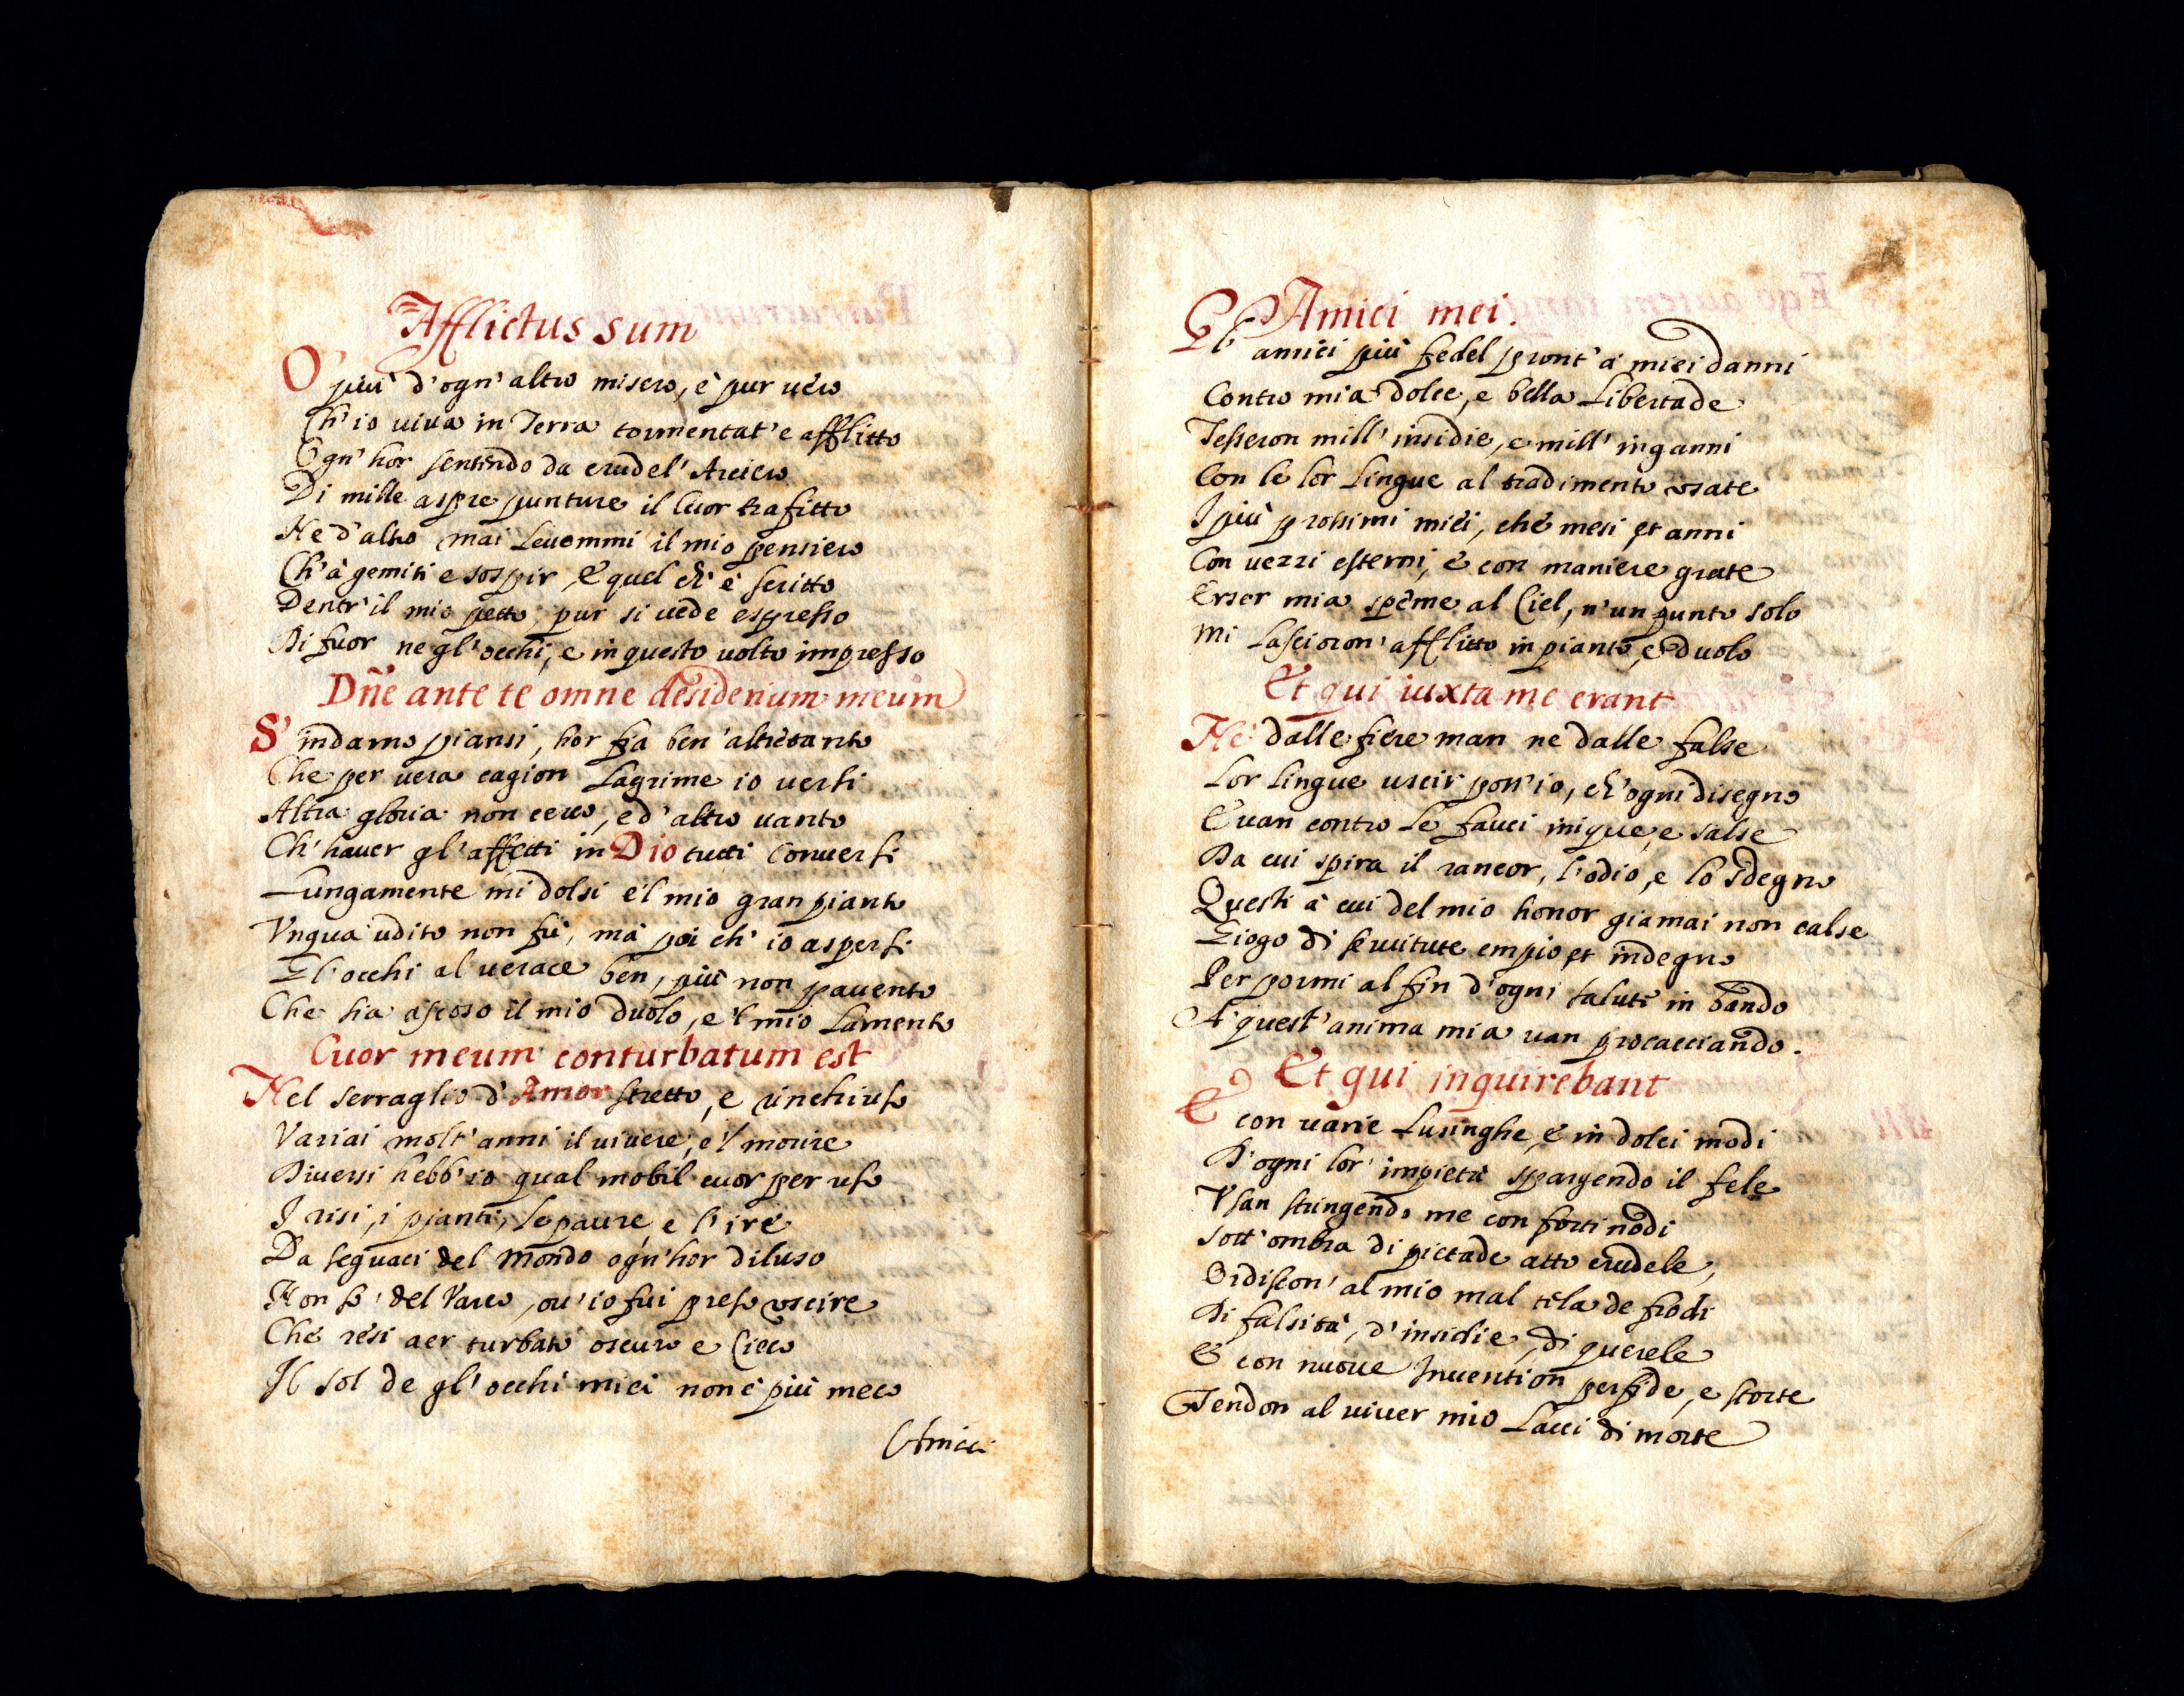 Afflictus sum
O' più d'ogn'altro misero, è pur uero
Ch'io uiua in Terra tormentat'e afflitto
Ogn'hor sentendo da crudel'Arciero
Di mille aspre punture il Cuor trafitto
Ne d'altro mai Leuommi il mio pensiero
Ch'à gemiti e sospir, e quel ch'è scritto
Dentr'il mio petto, pur si uede espresso
Di fuor ne gl'occhi, e in questo uolto impresso
Dñe ante te omne desiderium meum
S' indarno piansi, hor fia ben'altretanto
Che per uera cagion Lagrime io uersi
Altra gloria non cerco, ed'altro uanto
Ch'hauer gl'affetti in Dio tutti conuersi
Lungamente mi dolsi e'l mio gran pianto
Vnqua udito non fù, mà poi ch'io aspersi
Gl'occhi al uerace ben, più non pauento
Che sia ascoso il mio duolo, e'l mio Lamento
Cuor meum conturbatum est
Nel serraglio d'Amor stretto, e rinchiuso
Variai molt'anni il uiuere, e'l morire
Diuersi hebb'io qual mobil cuor per uso
I risi, i pianti, le paure, e l'ire
Da seguaci del Mondo ogn'hor diluso
Non sò del Varco, ou'io fui preso uscire
Che resi aer turbato oscuro e Cieco
Il sol de gl'occhi miei non è più meco
Amici
Amici mei.
Gl'amici più fedel pront'à miei danni
Contro mia dolce, e bella Libertade
Tesseron mill'insidie, e mill'inganni
Con le lor Lingue al tradimento usate
I più prossimi miei, che mesi et anni
Con uezzi esterni, e con maniere grate
Erser mia speme al Ciel, n'un punto solo
Mi Lascioron'afflitto in pianto, e duolo
Et qui iuxta me erant
Ne dalle fiere man ne dalle false
Lor Lingue uscir poss'io, ch'ogni disegno
E uan contro Le fauci inique, e salse
Da cui spira il rancor, l'odio, e lo sdegno
Questi à cui del mio honor giamai non calse
Giogo di seruitute empio, et indegno
Per pormi al fin d'ogni salute in bando
A'quest'anima mia uan procacciando.
Et qui inquirebant
E con uarie Lusinghe, e in dolci modi
D'ogni lor'impietà spargendo il fele
Vsan stringendo me con forti nodi
Sott'ombra di pietade atto crudele,
Ordiscon'al mio mal tela de frodi
Di falsità, d'insidie, di querele
E con nuoue Inuention perfide, e storte
Tendon al uiuer mio Lacci di morte